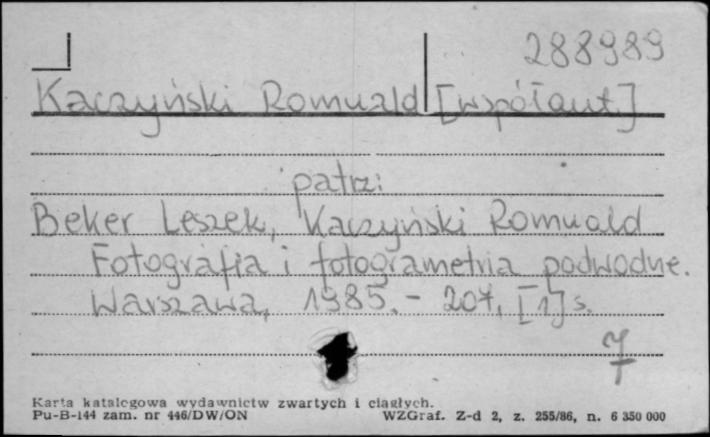 288989
Kaczyński Romuald [współaut.]
patrz:
Beker Leszek, Kaczyński Romuald
Fotografia i fotogrametria podwodne.
Warszawa, 1985. - 207, [1] s.
7
Karta katalogowa wydawnictw zwartych i ciągłych.
Pu-B-144 zam. nr 446/DW/ON WZGraf. Z-d 2, z. 255/86, n. 6 350 000